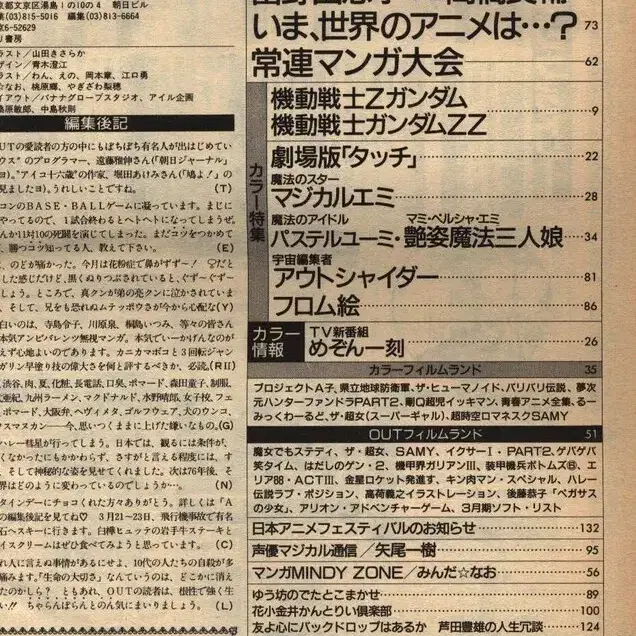 京都文京区湯島1の10の4 朝日ビル
(03)815-5016 編集(03)813-6664
京6-52629
リ書房
ラスト/山田きさらか
ザイン/青木澄江
ラスト/わん、えの、岡本章、江口勇
☆なお、桃原郷、やぎざわ梨穂
イアウト/バナナグローブスタジオ、アイル企画
島原敏郎、中島秋則
編集後記
OUTの愛読者の方の中にもぼちぼち有名人が出はじめてい
ウス"のプログラマー、遠藤雅伸さん(「朝日ジャーナル」
ヨ)。"アイコ十六歳"の作家、堀田あけみさん(「鳩よ!」の
見ましたヨ)。うれしいことですね。 (T)
コンのBASE・BALLゲームに凝っています。まじに
やってるので、1試合終わるとヘトヘトになってしまうぜ。
か11対10の死闘を演じてしまった。まだコツをつかめて
、勝つコツ知ってる人、教えて下さい。 (E)
、のどが痛かった。今月は花粉症で鼻がずず〜!
した感じだけど、黒くぬりつぶされていると、ぐず〜ぐず〜
しょう。ところで、真クンが弟の亮クンに泣かされていま
、そして、兄をも恐れぬムテッポウさが今から心配な(Y)
白いのは、寺島令子、川原泉、桐島いつみ、等々の皆さん
本気アンビバレンツ無視マンガ。本気でいーかげんなのが
えず心地よいのであります。カニカマボコと3回転ジャン
ガリン早塗り技の偉大さを何と評するべきか、必読。(RII)
渋谷、肉、夏、化粧、長電話、口臭、ポマード、森田童子、制服、
亜紀、九州ラーメン、マクドナルド、水野晴郎、女子校、フェ
、ポマード、大阪弁、ヘヴィメタ、ゴルフウェア、犬のウンコ、
ウスマヌカン──今、思いつくままに上げた嫌いなもの。(G)
ハレー彗星が行ってしまう。日本では、観るには条件が、
くなかったにもかかわらず、さすがと言える程度には、す
、そして神秘的な姿を見せてくれました。次は76年後、そ
界はどのように変わっているのでしょうか…。 (D)
タインデーにチョコくれた方々ありがとう。詳しくは「A
の編集後記を見てね♡ 3月21〜23日、飛行機事故で有名
石へスキーに行きます。白樺ヒュッテの岩手牛ステーキと
イスクリームはぜひ食べてみようと思っています。 (C)
れ人に言えぬ事情があるにせよ、10代の人たちの自殺が多
痛みます。「生命の大切さ」なんていうのは、どこかに消え
たのかしら? ともあれ、OUTの読者は、根性で強く生
い!! ちゃらんぽらんとのん気にまいりましょう。 (L)
いま、世界のアニメは…? 73
常連マンガ大会 62
カラー特集
機動戦士Zガンダム
機動戦士ガンダムZZ 9
劇場版「タッチ」 22
魔法のスター
マジカルエミ 28
魔法のアイドル マミ・ペルシャ・エミ
パステルユーミ・艶姿魔法三人娘 34
宇宙編集者
アウトシャイダー 81
フロム絵 86
カラー情報
TV新番組
めぞん一刻 26
カラーフィルムランド 35
プロジェクトA子、県立地球防衛軍、ザ・ヒューマノイド、バリバリ伝説、夢次
元ハンターファンドラPART2、剛Q超児イッキマン、青春アニメ全集、るー
みっくわーるど、ザ・超女(スーパーギャル)、超時空ロマネスクSAMY
OUTフィルムランド 51
魔女でもステディ、ザ・超女、SAMY、イクサー1・PART2、ゲバゲバ
笑タイム、はだしのゲン・2、機甲界ガリアンⅢ、装甲機兵ボトムズ⑧、エ
リア88・ACTⅢ、金星ロケット発進す、キン肉マン・スペシャル、ハレー
伝説ラブ・ポジション、高荷義之イラストレーション、後藤恭子「ペガサス
の少女」、アリオン・アドベンチャーゲーム、3月期ソフト・リスト
日本アニメフェスティバルのお知らせ 132
声優マジカル通信/矢尾一樹 95
マンガMINDY ZONE/みんだ☆なお 56
ゆう坊のでたとこまかせ 89
花小金井かんとりい倶楽部 100
友よ心にバックドロップはあるか 芦田豊雄の人生冗談 124